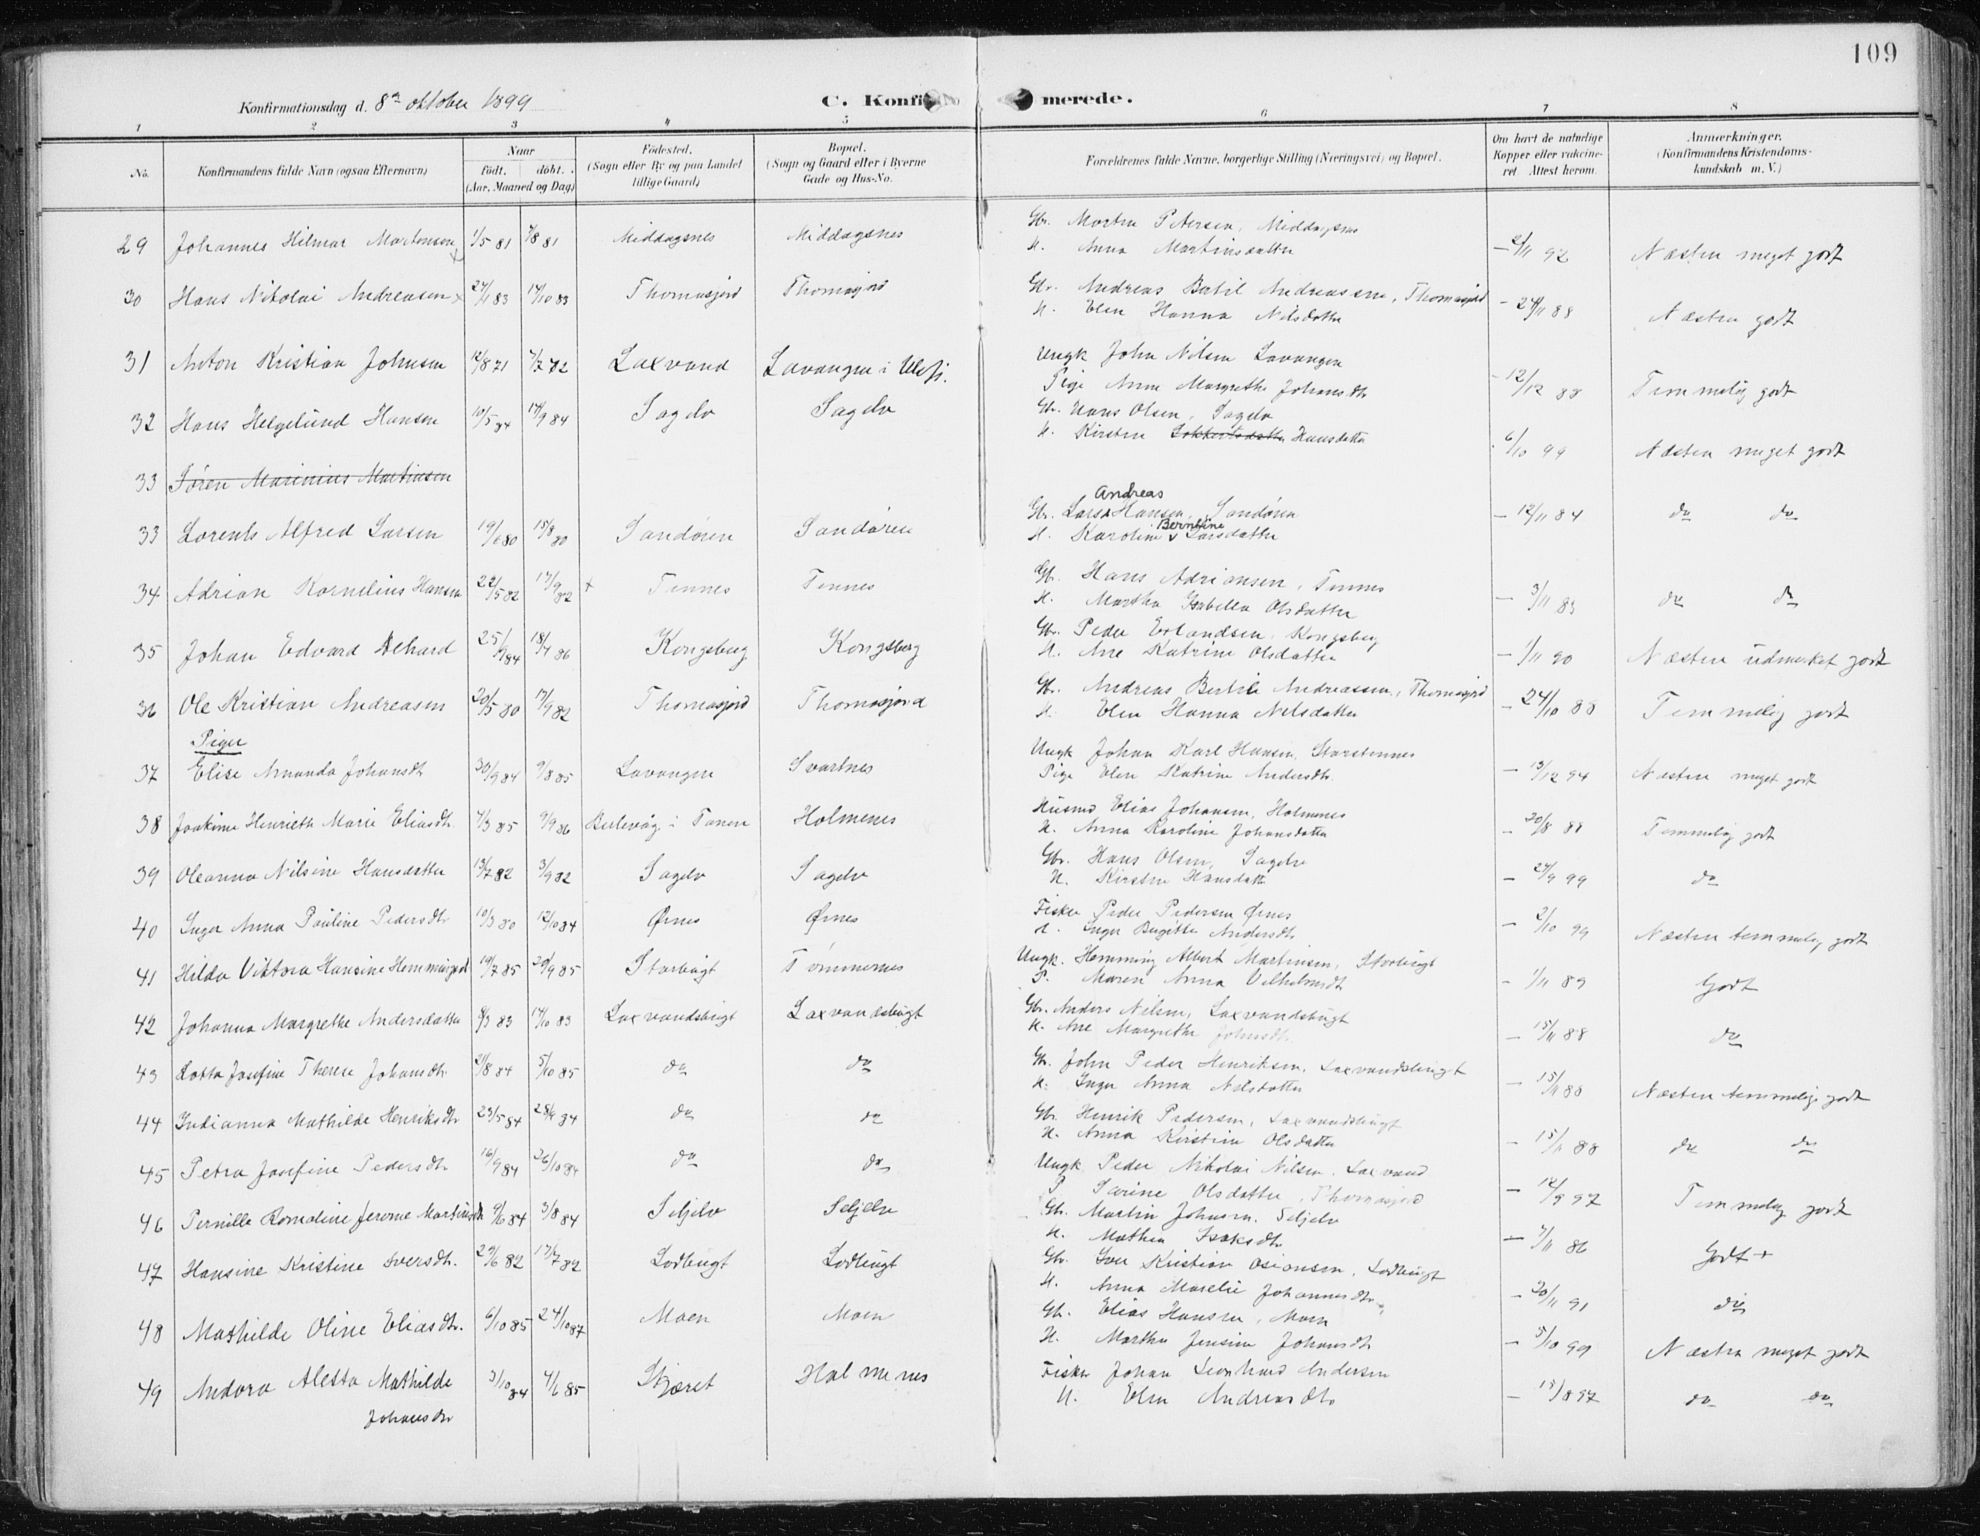 109
Konfirmationsdag d. 8de oktober 1899
C. Konfirmerede.
1 2 3 4 5 6 7 8
No.
Konfirmandens fulde Navn (ogsaa Efternavn)
Naar
födt. döbt.
(Aar, Maaned og Dag)
Födested.
(Sogn eller By og paa Landet
tillige Gaard)
Bopæl.
(Sogn og Gaard eller i Byerne
Gade og Hus-No.
Forældrenes fulde Navne, borgerlige Stilling (Næringsvei) og Bopæl.
Om havt de naturlige
Kopper eller vakcine-
ret Attest herom.
Anmærkninger.
(Konfirmandens Kristendoms-
kundskab m. V.)
29 Johannes Hilmar Mortensen 1/5 81 7/8 81 Middagsnes Middagsnes Gbr. Morten Petersen, Middagsnes
H. Anna Martinsdatter — 2/11 92 Næsten meget godt
30 Hans Nikolai Andreasen 83 14/10 83 Thomasjord Thomasjord Gbr. Andreas Bertil Andreassen, Thomasjord
H. Elen Hanna Nilsdatter — 24/11 88 Næsten godt
31 Anton Kristian Johnsen 12/8 71 7/7 72 Laxvand Lavangen i Ulfsfj. Ungk John Nilsen Lavangen
Pige Anne Margrethe Johansdtr — 12/12 88 Temmelig godt
32 Hans Helgelund Hansen 10/5 84 14/9 84 Sagelv Sagelv Gbr. Hans Olsen, Sagelv
H. Kirsten Hansdatter 6/10 99 Næsten meget godt
33 Søren Marinius Martinsen
33 Lorents Alfred Larsen 19/6 80 15/8 80 Sandøren Sandøren Gbr. Lars Andreas Hansen, Sandøren
H. Karoline Berntine Larsdatter — 12/11 84 do do
34 Adrian Kornelius Hansen 22/5 82 17/9 82 + Tennes Tennes Gbr. Hans Adriansen, Tennes
H. Martha Isabella Olsdatter — 3/11 83 do do
35 Johan Edvard Dehard 25/9 84 18/4 86 Kongsberg Kongsberg Gbr. Peder Erlandsen, Kongsberg
H. Ane Katrine Olsdatter — 1/11 90 Næsten udmerket godt
36 Ole Kristian Andreasen 20/5 80 17/9 82 Thomasjord Thomasjord Gbr. Andreas Bertil Andreassen, Thomasjord
H. Elen Hanna Nilsdatter — 24/10 88 Temmelig godt
Piger
37 Elise Amanda Johansdtr 30/9 84 9/8 85 Lavangen Svartnes Ungk Johan Karl Hansen, Storstennes
Pige Elen Katrine Andersdtr. — 13/12 94 Næsten meget godt
38 Joakime Henriette Marie Eliasdtr. 7/3 85 9/9 86 Berlevåg i Tanen Holmenes Husmd Elias Johansen, Holmenes
H. Anna Karoline Johansdatter — 20/8 88 Temmelig godt
39 Oleanna Nilsine Hansdatter 13/7 82 3/9 82 Sagelv Sagelv Gbr. Hans Olsen, Sagelv
H. Kirsten Hansdatter — 24/9 99 do
40 Inger Anna Pauline Pedersdtr 10/3 80 12/10 84 Ørnes Ørnes Fisker Peder Pedersen Ørnes
H. Inger Birgitte Andersdtr — 2/10 99 Næsten temmelig godt
41 Hilda Viktoria Hansine Hemmingsd 19/7 85 20/9 85 Storbugt Tømmernes Ungk. Hemming Albert Martinsen, Storbugt
P. Maren Anna Vilhelmsdtr — 1/11 89 Godt
42 Johanna Margrethe Andersdatter 8/3 83 14/10 83 Laxvandsbugt Laxvandsbugt Gbr. Anders Nilsen, Laxvandsbugt
H. Ane Margrethe Johnsdtr. — 15/11 88 do
43 Lotta Josefine Therese Johansdtr. 21/8 84 5/10 85 do do Gbr. John Peder Henriksen, Laxvandsbugt
H. Inger Anna Nilsdatter — 15/11 88 Næsten temmelig godt
44 Indianna Mathilde Henriksdtr 23/5 84 28/9 84 do do Gbr. Henrik Pedersen, Laxvandsbugt
H. Anna Kirstine Olsdatter — 15/11 88 do do
45 Petra Josefine Pedersdtr 16/9 84 26/10 84 do do Ungk Peder Nikolai Nilsen, Laxvand
P Sarine Olsdatter, Thomasjord — 12/9 97 Temmelig godt
46 Pernille Romoline Jerome Martinsdtr 9/6 84 3/8 84 Seljelv Seljelv Gbr. Martin Johnsen, Seljelv
H. Mathea Isaksdtr. — 7/11 86 Godt +
47 Hansine Kristine Iversdtr. 29/6 82 17/7 82 Lodbugt Lodbugt Gbr. Iver Kristian Osiansen, Lodbugt
H. Anna Marelie Johannesdtr. — 20/11 91 do
48 Mathilde Oline Eliasdtr. 6/10 85 24/10 87 Moen Moen Gbr. Elias Hansen, Moen
H. Martha Jensine Johansdtr — 5/10 99 Næsten meget godt
49 Andora Aletta Mathilde 3/10 84 4/6 85 Skjæret Holmenes Fisker Johan Leonhard Andersen
Johansdtr H. Elen Andreasdtr — 15/8 97 do do